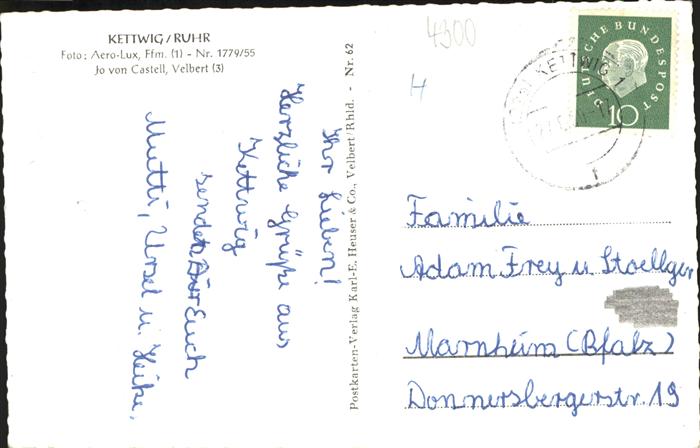 KETTWIG/RUHR
Foto: Aero-Lux, Ffm. (1) - Nr. 1779/55
Jo von Castell, Velbert (3)
Ihr Lieben!
Herzliche Grüße aus
Kettwig
sendet Euch
Mutti, Ursel u. Heike.
Postkarten-Verlag Karl-E. Heuser & Co., Velbert/Rhld. - Nr. 62
4300
H
DEUTSCHE BUNDESPOST
10
KETTWIG 1
Familie
Adam Frey u. Stoellger
Marnheim (Pfalz)
Donnersbergerstr. 19